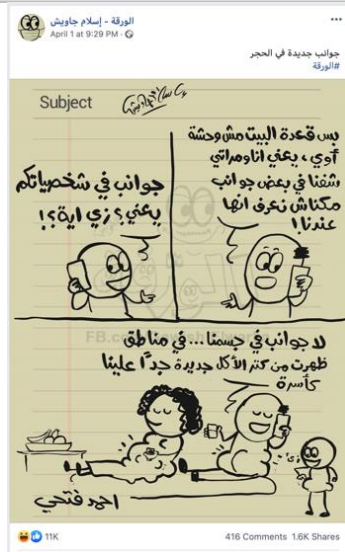 الورقة - إسلام جاويش
April 1 at 9:29 PM
جوانب جديدة في الحجر
#الورقة
Subject
بس قعدة البيت مش وحشة
أوي، يعني انا ومراتي
شفنا في بعض جوانب
مكناش نعرف انها
عندنا!
جوانب في شخصياتكم
يعني؟ زي اية؟!
لا جوانب في جسمنا... في مناطق
ظهرت من كتر الأكل جديدة جدًا علينا
كأسرة
احمد فتحي
11K
416 Comments 1.6K Shares